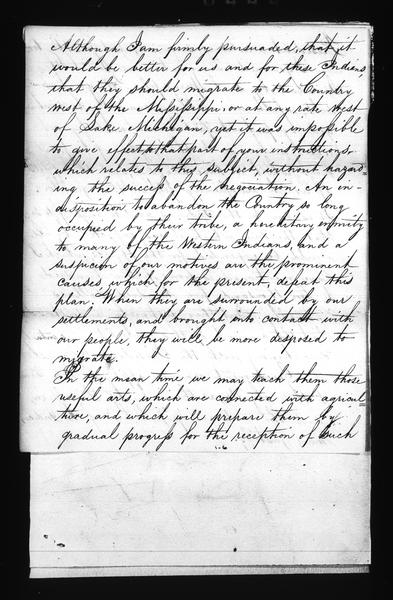 Although I am firmly pursuaded, that it
would be better for us and for these Indians
that they should migrate to the Country
west of the Mississippi, or at any rate west
of Lake Michigan, yet it was impossible
to give effect to that part of your instructions,
which relates to this subject, without hazard=
ing the success of the negociation. An in-
disposition to abandon the Country so long
occupied by their tribe, a hereditary enmity
to many of the Western Indians, and a
suspicion of our motives are the prominent
causes, which for the present, defeat this
plan. When they are surrounded by our
settlements, and brought into contact with
our people, they will be more desposed to
migrate.
In the mean time we may teach them those
useful arts, which are connected with agricul=
ture, and which will prepare them by
gradual progress for the reception of such